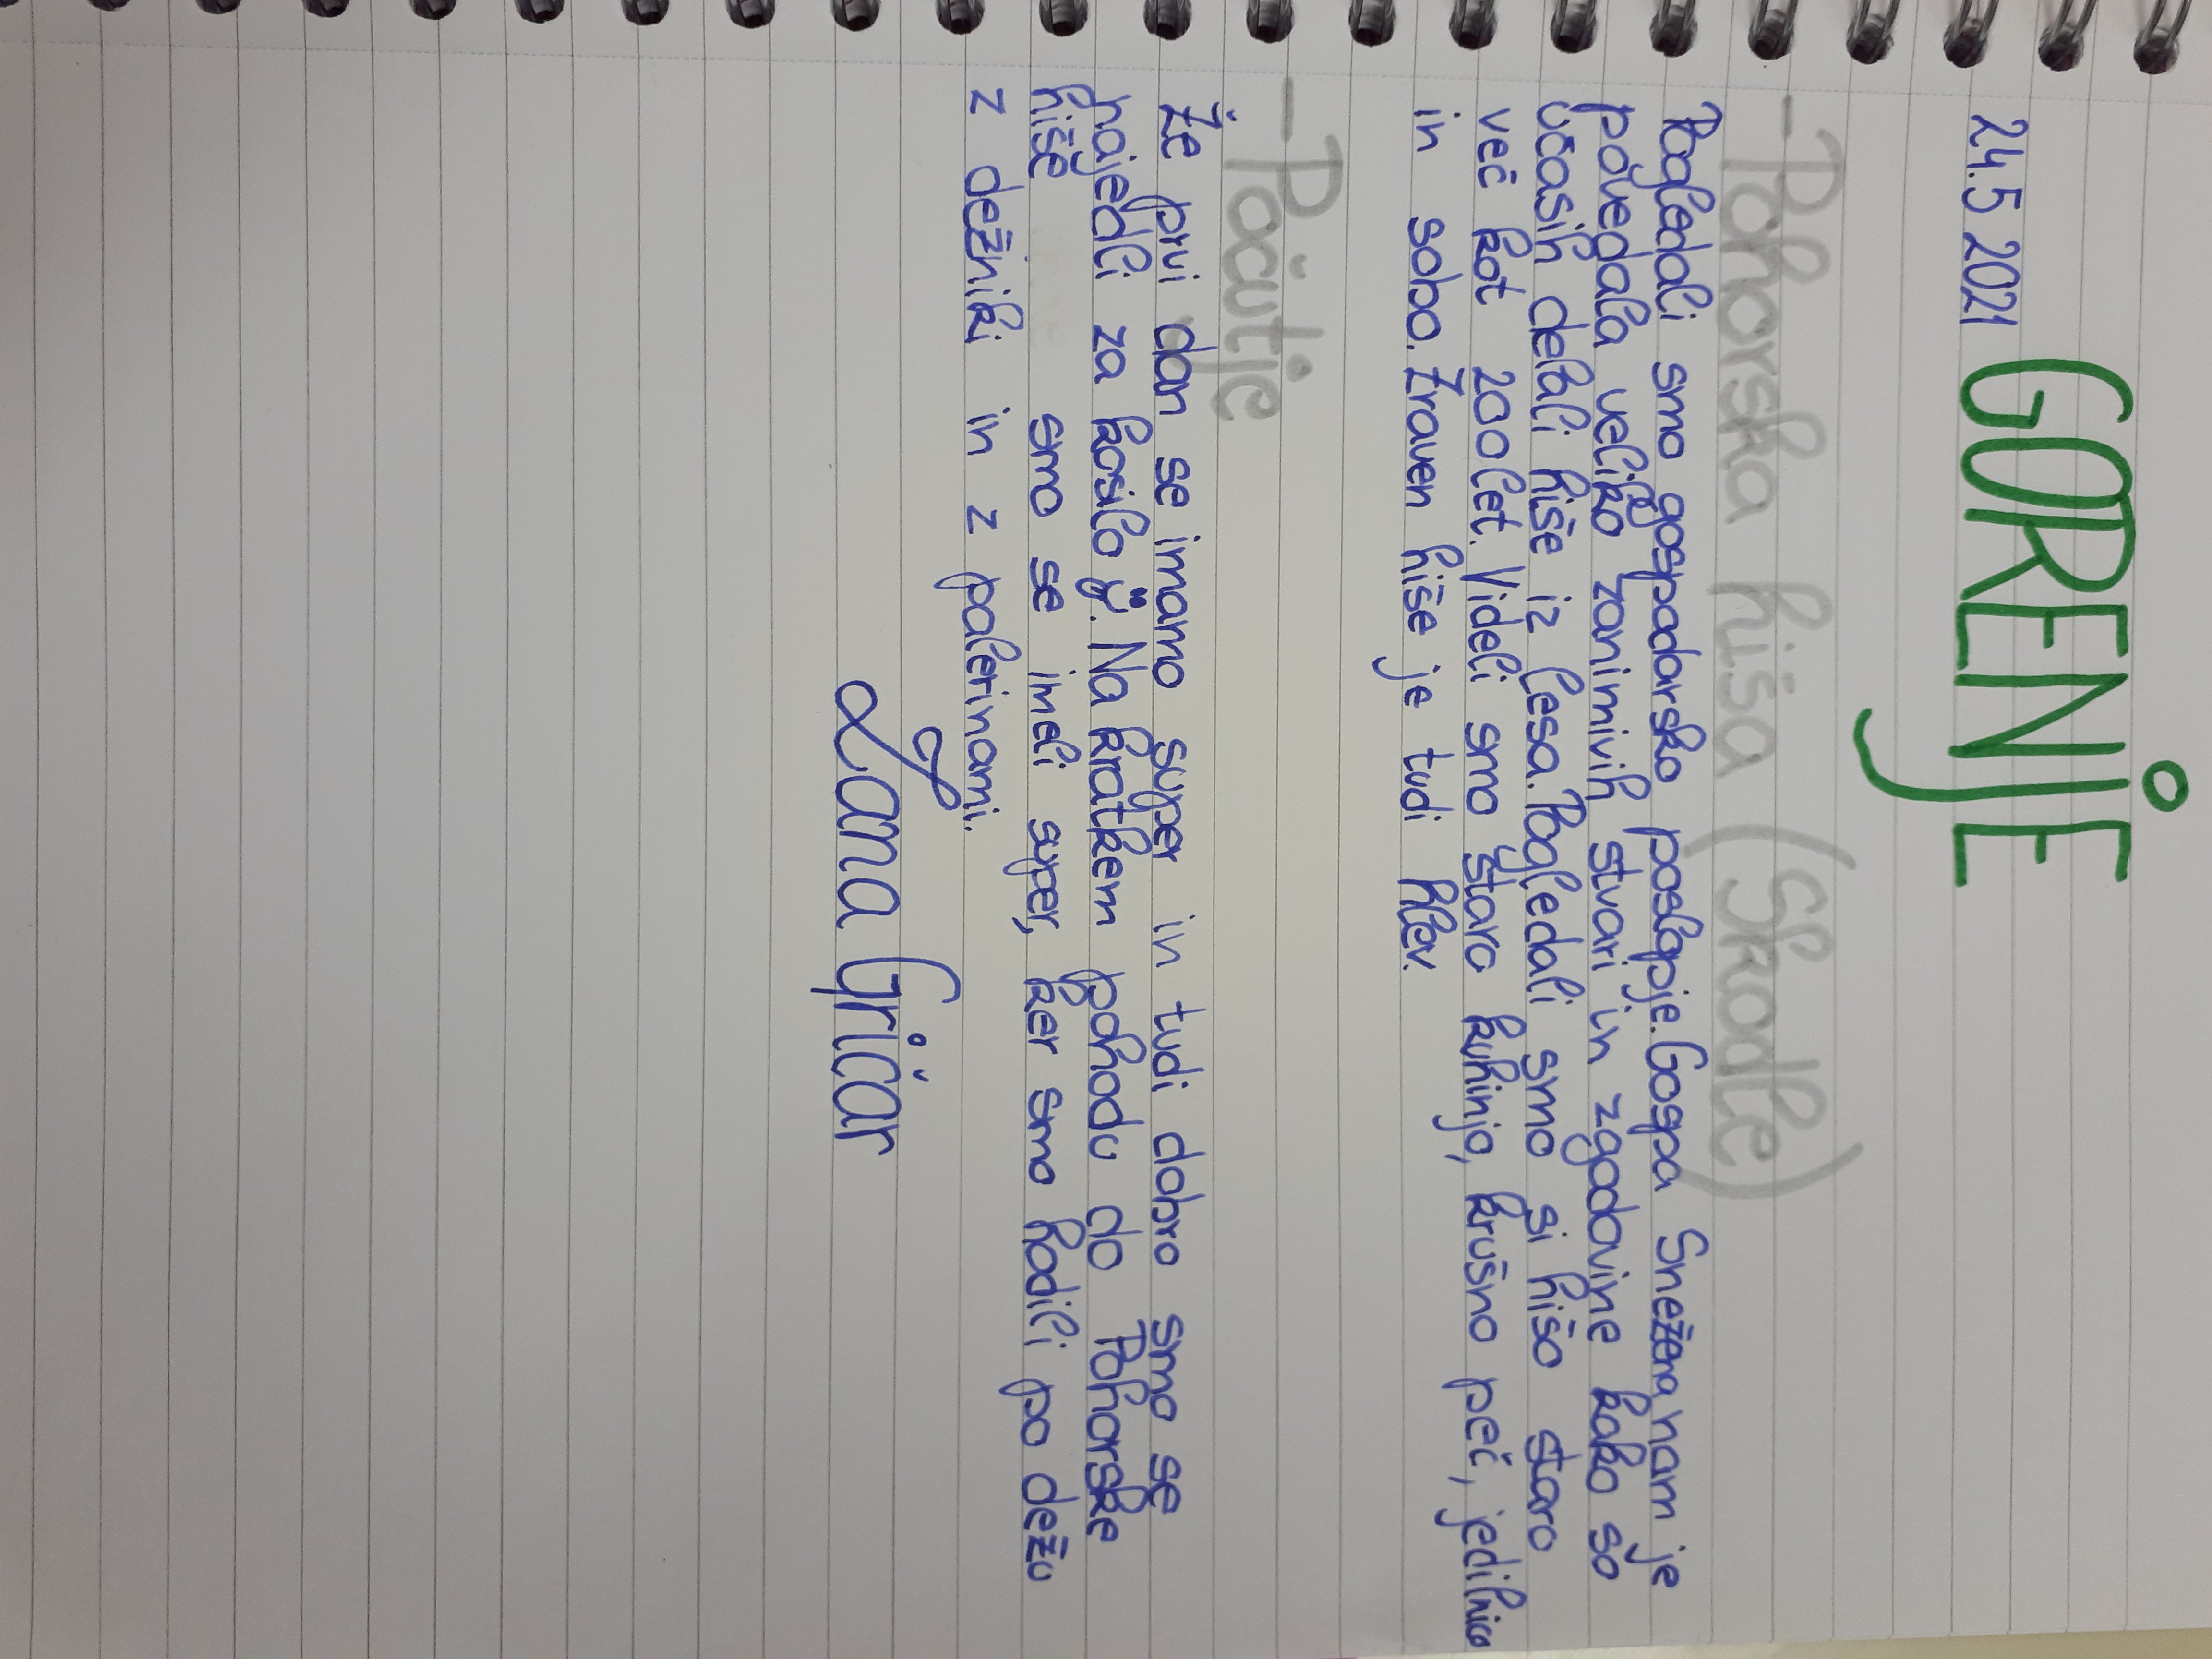 24.5 2021 GORENJE
-Pohorska hiša (Škadle)
Pogledali smo gospodarsko poslopje. Gospa Snežena nam je
povedala veliko zanimivih stvari in zgodovine kako so
včasih delali hiše iz lesa. Pogledali smo si hišo staro
več kot 200let. Videli smo staro kuhinjo, krušno peč, jedilnico
in sobo. Zraven hiše je tudi hlev.
-Počutje
Že prvi dan se imamo super in tudi dobro smo se
najedli za kosilo. Na kratkem pohodu do Pohorske
hiše smo se imeli super, ker smo hodili po dežu
z dežniki in z palerinami.
Lana Gričar